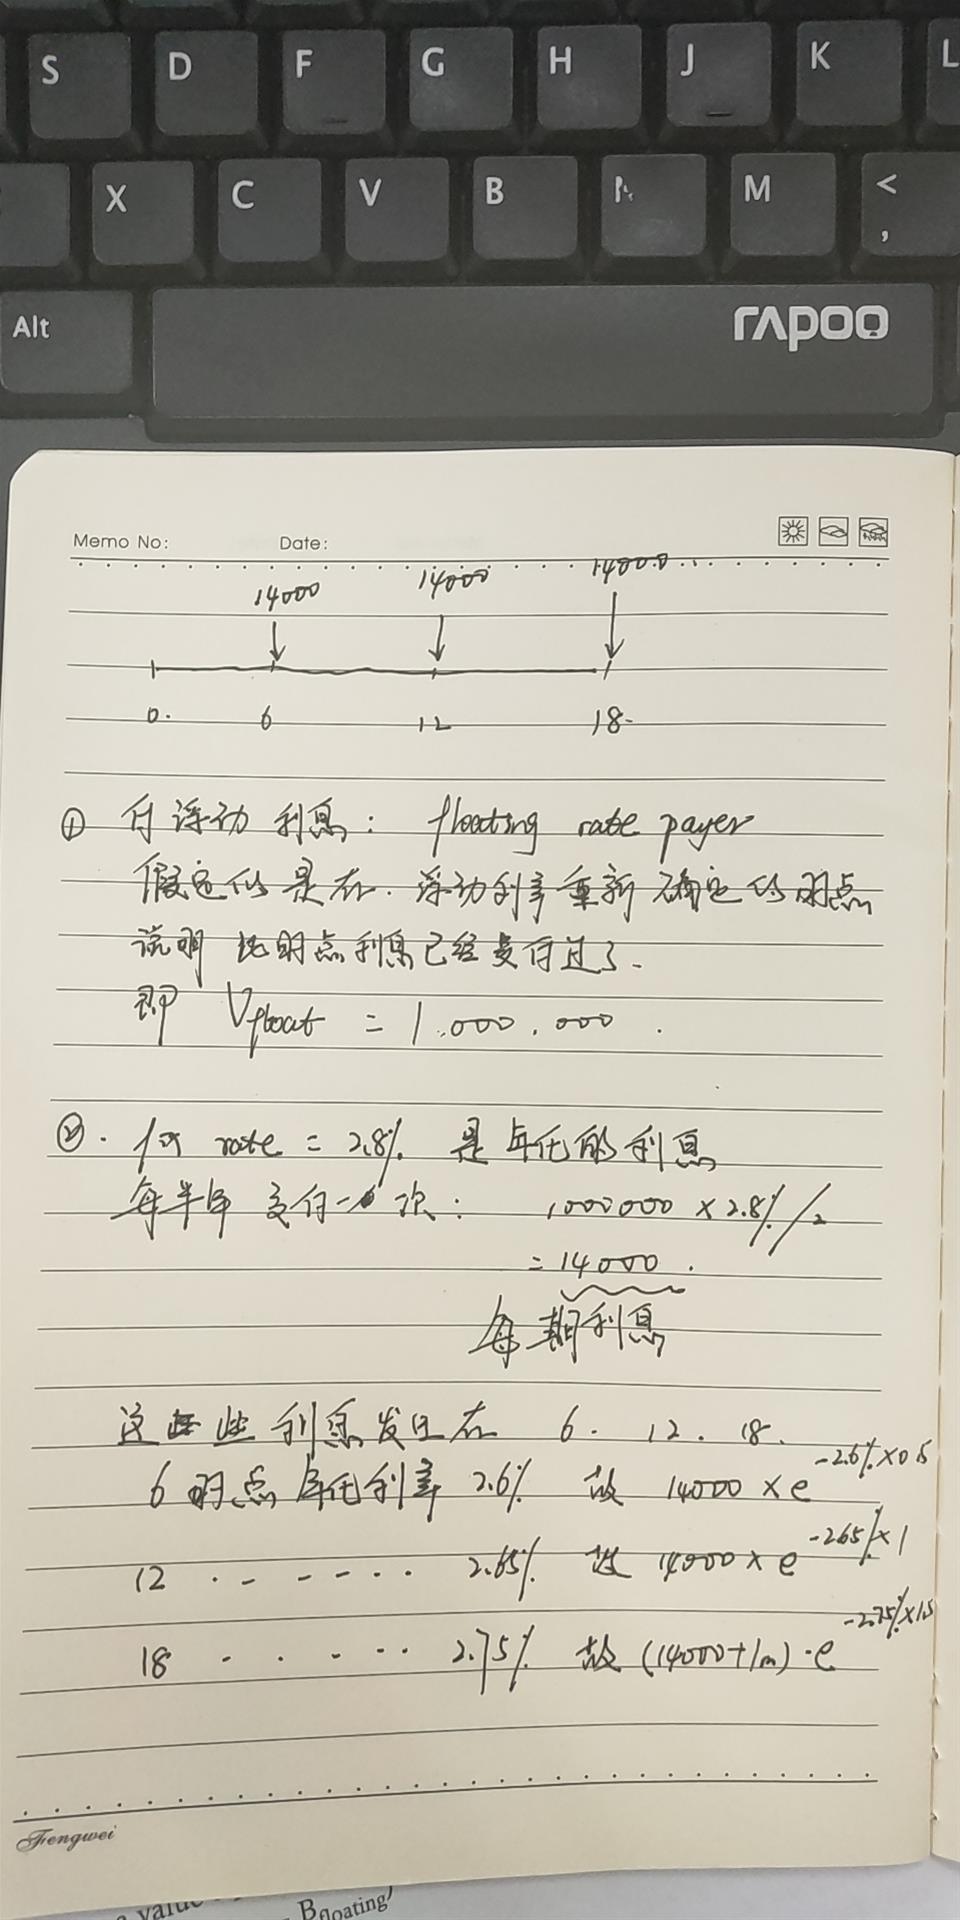 S D F G H J K L
X C V B N M <
,
Alt
rapoo
Memo No: Date:
14000 14000 14000
0. 6 12 18.
① 付浮动利息: floating rate payer
假定的是在.浮动利率重新确定的时点
说明 此时点利息已经支付过了.
即 Vfloat = 1,000,000.
②. fix rate = 2.8% 是年化的利息
每半年 支付一次: 1000000 × 2.8%/2
= 14000.
每期利息
这些利息发生在 6. 12. 18.
6时点年化利率 2.6% 故 14000 × e^-2.6%×0.5
12 · - - - · · 2.65% 故 14000 × e^-2.65%×1
18 - · · - · · 2.75% 故 (14000+1m)·e^-2.75%×1.5
Fengwei
value
Bfloating)